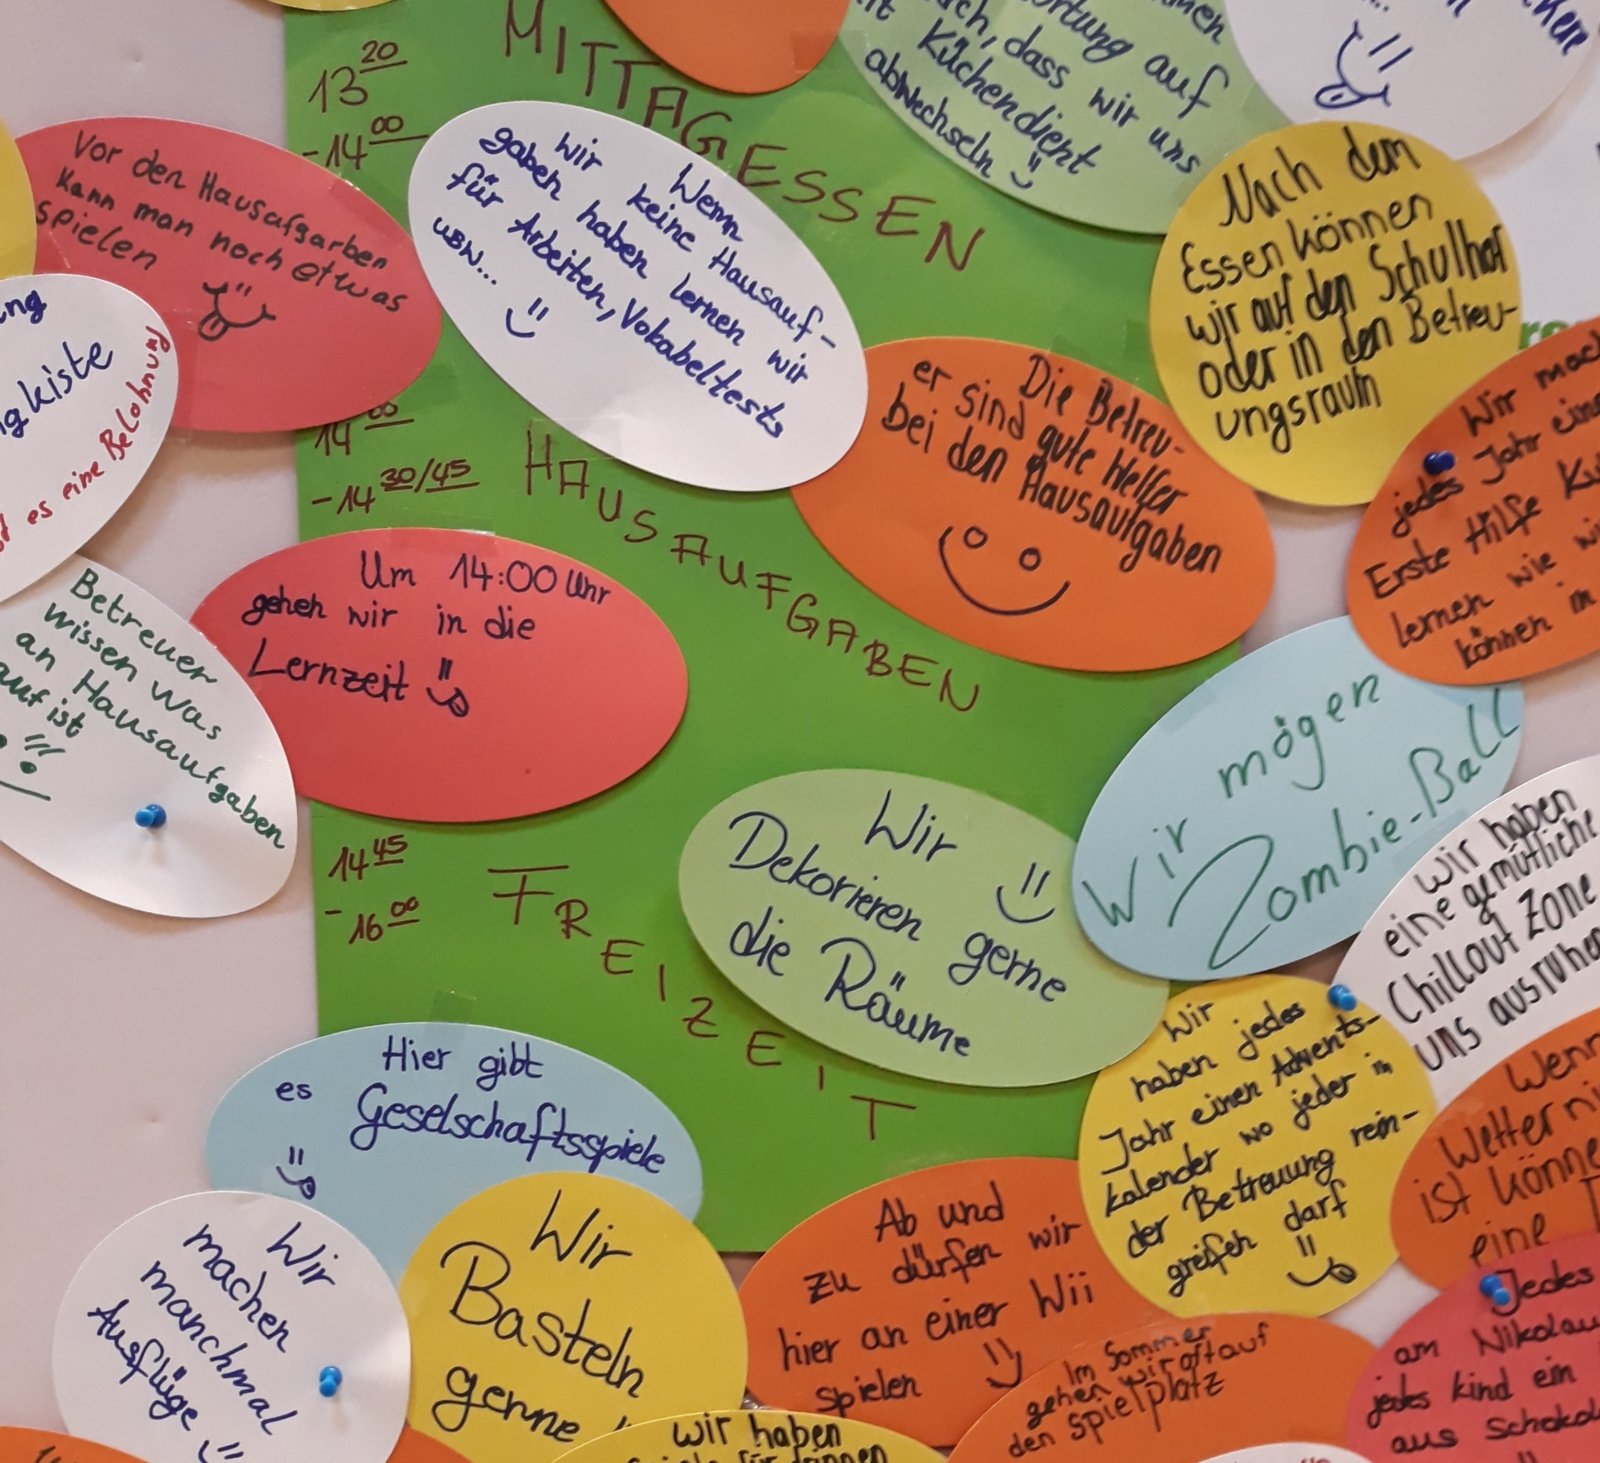 13 20
- 14 00
MITTAGESSEN
auf
dass wir uns
Küchendienst
abwechseln
Vor den Hausafgarben
kann man noch etwas
spielen
Wenn
wir keine Hausauf-
gaben haben lernen wir
für Arbeiten, Vokabeltests
usw...
Nach dem
Essen können
wir auf den Schulhof
oder in den Betreu-
ungsraum
kiste
es eine Belohnung
14 00
- 14 30/45
HAUSAUFGABEN
Die Betreu-
er sind gute Helfer
bei den Hausaufgaben
Wir
jedes Jahr
Erste Hilfe
lernen wie
können in
Betreuer
wissen was
an Hausaufgaben
auf ist
Um 14:00 Uhr
gehen wir in die
Lernzeit
Wir mögen
Zombie-Ball
14 45
- 16 00
FREIZEIT
Wir
Dekorieren gerne
die Räume
wir haben
eine gemütliche
Chillout Zone
uns
Wir
haben jedes
Jahr einen Advents-
kalender wo jeder in
der Betreuung rein-
greifen darf
Hier gibt
es Geselschaftsspiele
Wenn
Wetter
ist
eine
Wir
machen
manchmal
Ausflüge
Wir
Basteln
gerne
Ab und
zu dürfen wir
hier an einer Wii
spielen
Im Sommer
gehen wir oft auf
den Spielplatz
Jedes
am
jedes kind ein
aus
wir haben